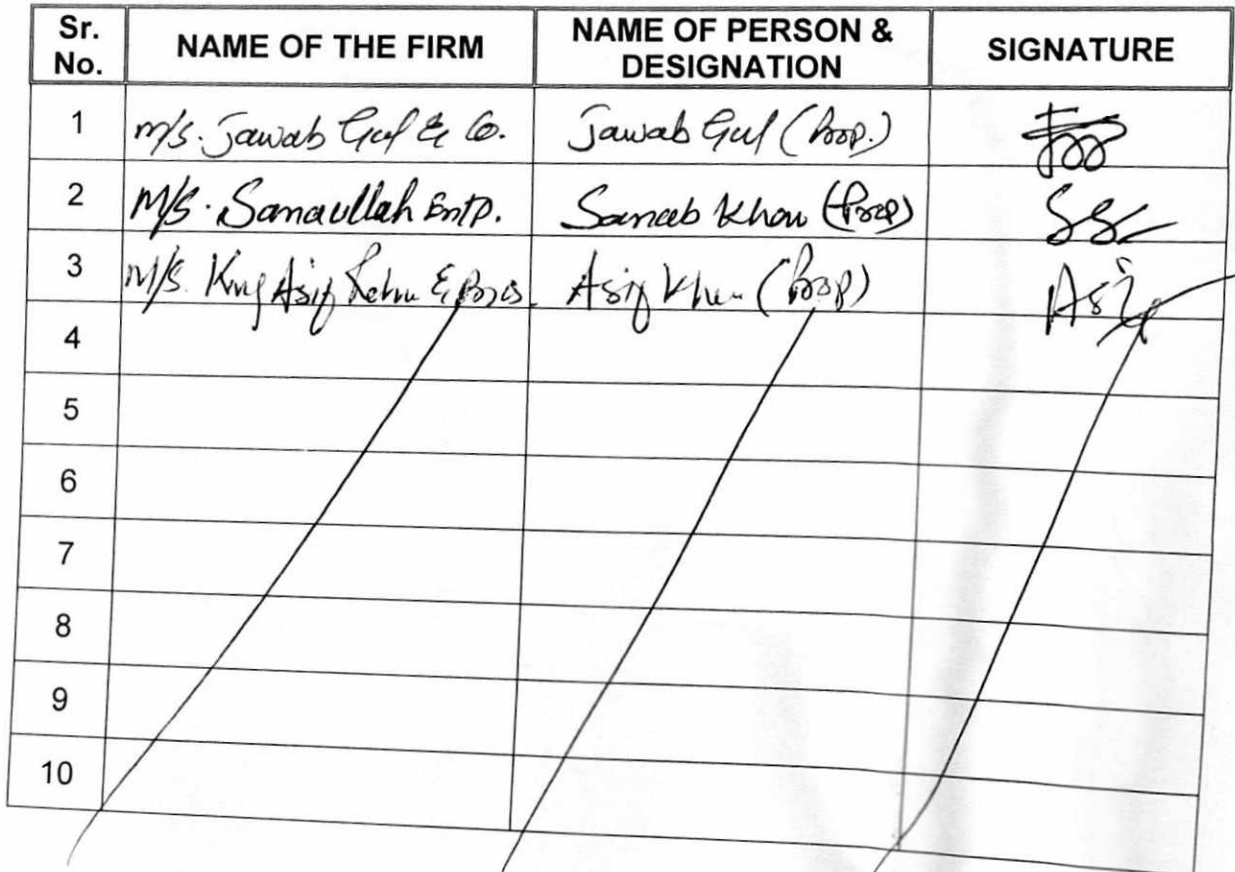 Sr. No. NAME OF THE FIRM NAME OF PERSON & DESIGNATION SIGNATURE
1 M/S. Jawab Gul & Co. Jawab Gul (Prop.)
2 M/S. Sanaullah Entp. Sanaab Khan (Prop)
3 M/S. King Asif & Bros. Asif Khan (Prop) Asif
4
5
6
7
8
9
10